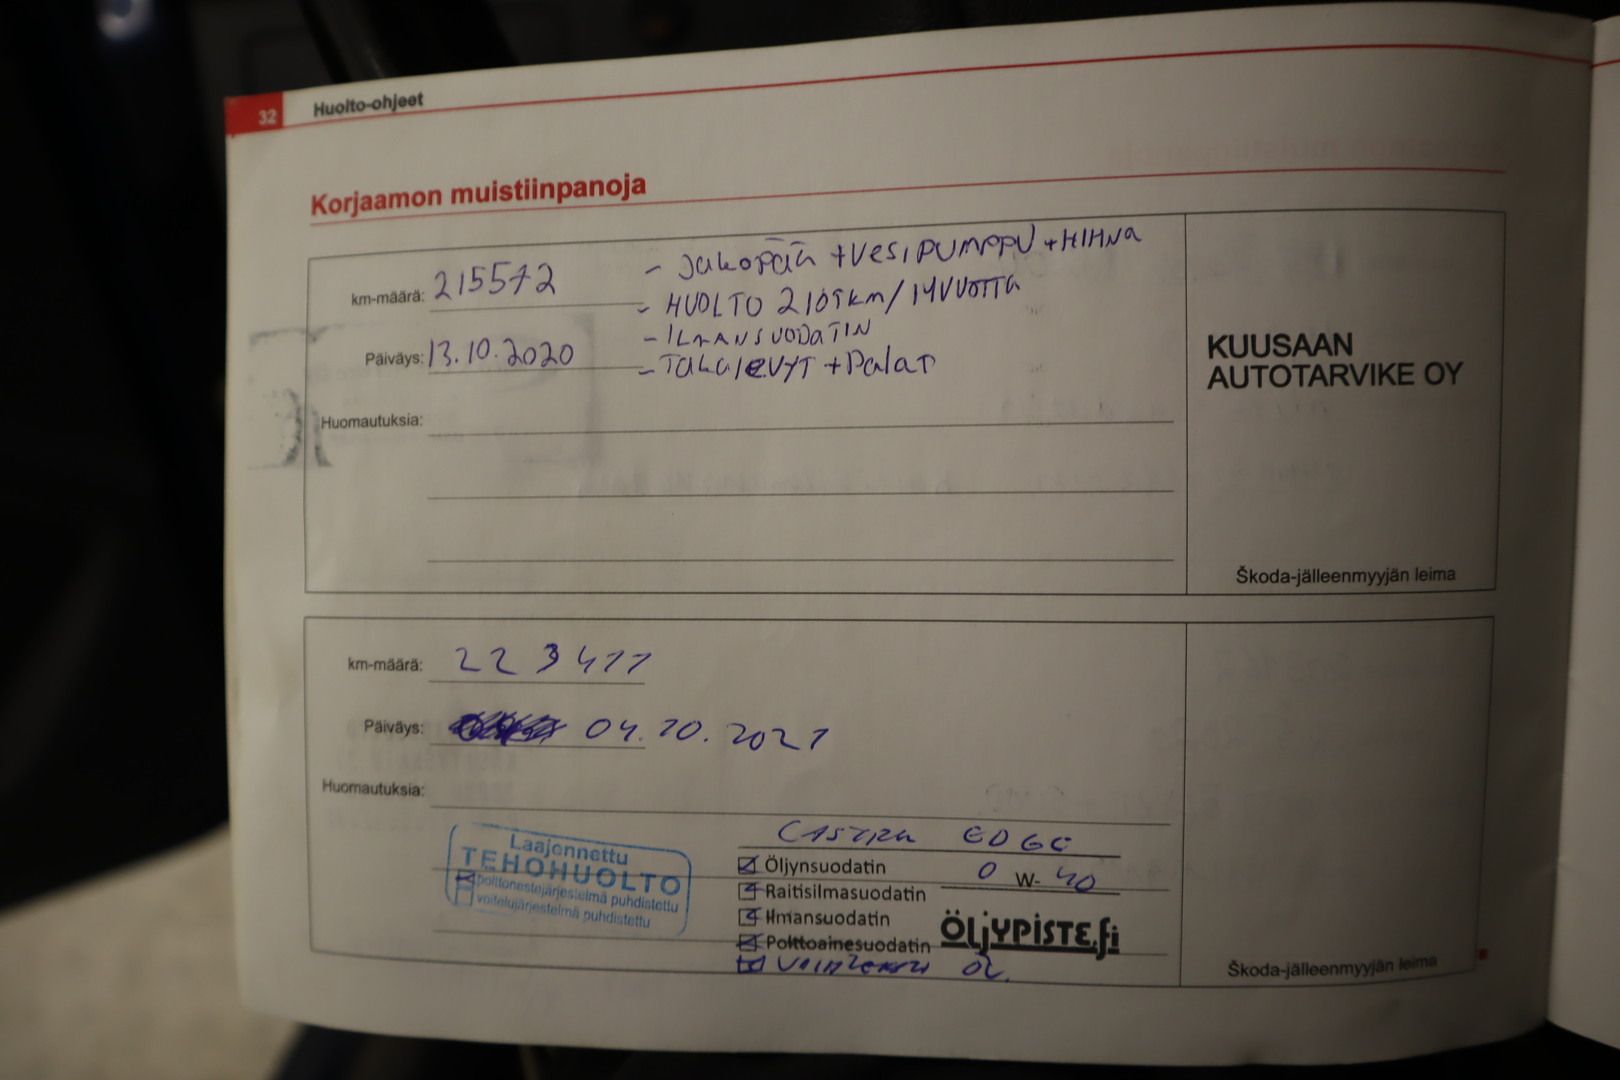 32 Huolto-ohjeet
Korjaamon muistiinpanoja
km-määrä: 215572
Päiväys: 13.10.2020
- Jakopää + vesipumppu + HIHNA
- HUOLTO 210tkm/14VUOTTA
- ILMANSUODATIN
- Takalevyt + Palat
Huomautuksia:
KUUSAAN
AUTOTARVIKE OY
Škoda-jälleenmyyjän leima
km-määrä: 223411
Päiväys: 04.10.2021
Huomautuksia:
Laajennettu
TEHOHUOLTO
polttonestejärjestelmä puhdistettu
voitelujärjestelmä puhdistettu
EDGE
Öljynsuodatin
0 W-40
Raitisilmasuodatin
Ilmansuodatin
Polttoainesuodatin
ÖLJYPISTE.fi
Škoda-jälleenmyyjän leima